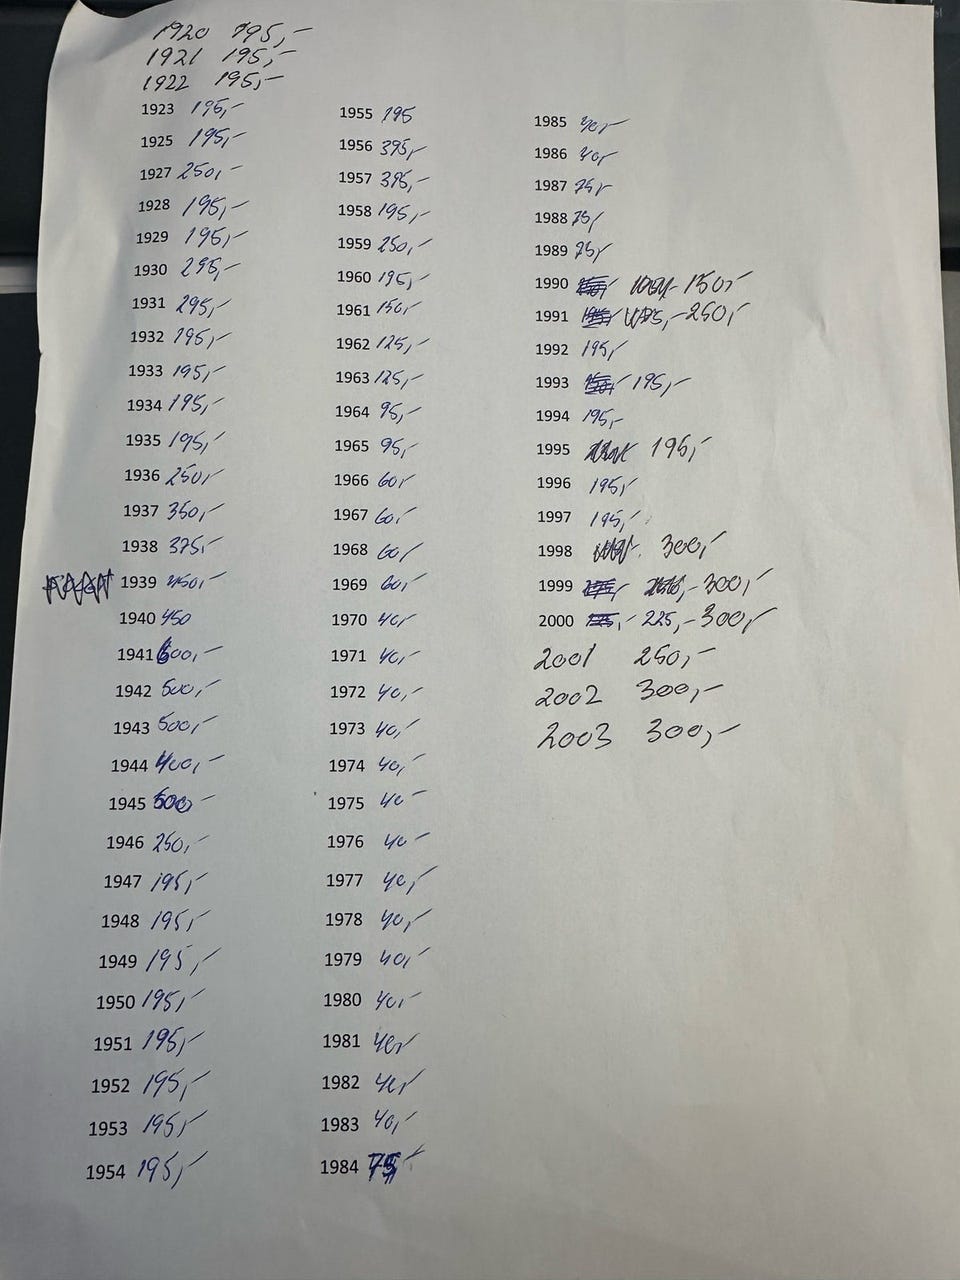 1920 195,-
1921 195,-
1922 195,-
1923 195,-
1925 195,-
1927 250,-
1928 195,-
1929 195,-
1930 295,-
1931 295,-
1932 195,-
1933 195,-
1934 195,-
1935 195,-
1936 250,-
1937 350,-
1938 375,-
1939 450,-
1940 450
1941 600,-
1942 500,-
1943 500,-
1944 400,-
1945 500 -
1946 250,-
1947 195,-
1948 195,-
1949 195,-
1950 195,-
1951 195,-
1952 195,-
1953 195,-
1954 195,-
1955 195
1956 395,-
1957 395,-
1958 195,-
1959 250,-
1960 195,-
1961 150,-
1962 125,-
1963 125,-
1964 95,-
1965 95,-
1966 60,-
1967 60,-
1968 60,-
1969 60,-
1970 40,-
1971 40,-
1972 40,-
1973 40,-
1974 40,-
1975 40 -
1976 40 -
1977 40,-
1978 40,-
1979 40,-
1980 40,-
1981 40,-
1982 40,-
1983 40,-
1984 75,-
1985 40,-
1986 40,-
1987 75,-
1988 75,-
1989 75,-
1990 150,-
1991 250,-
1992 195,-
1993 195,-
1994 195,-
1995 195,-
1996 195,-
1997 195,-
1998 300,-
1999 300,-
2000 225,- 300,-
2001 250,-
2002 300,-
2003 300,-